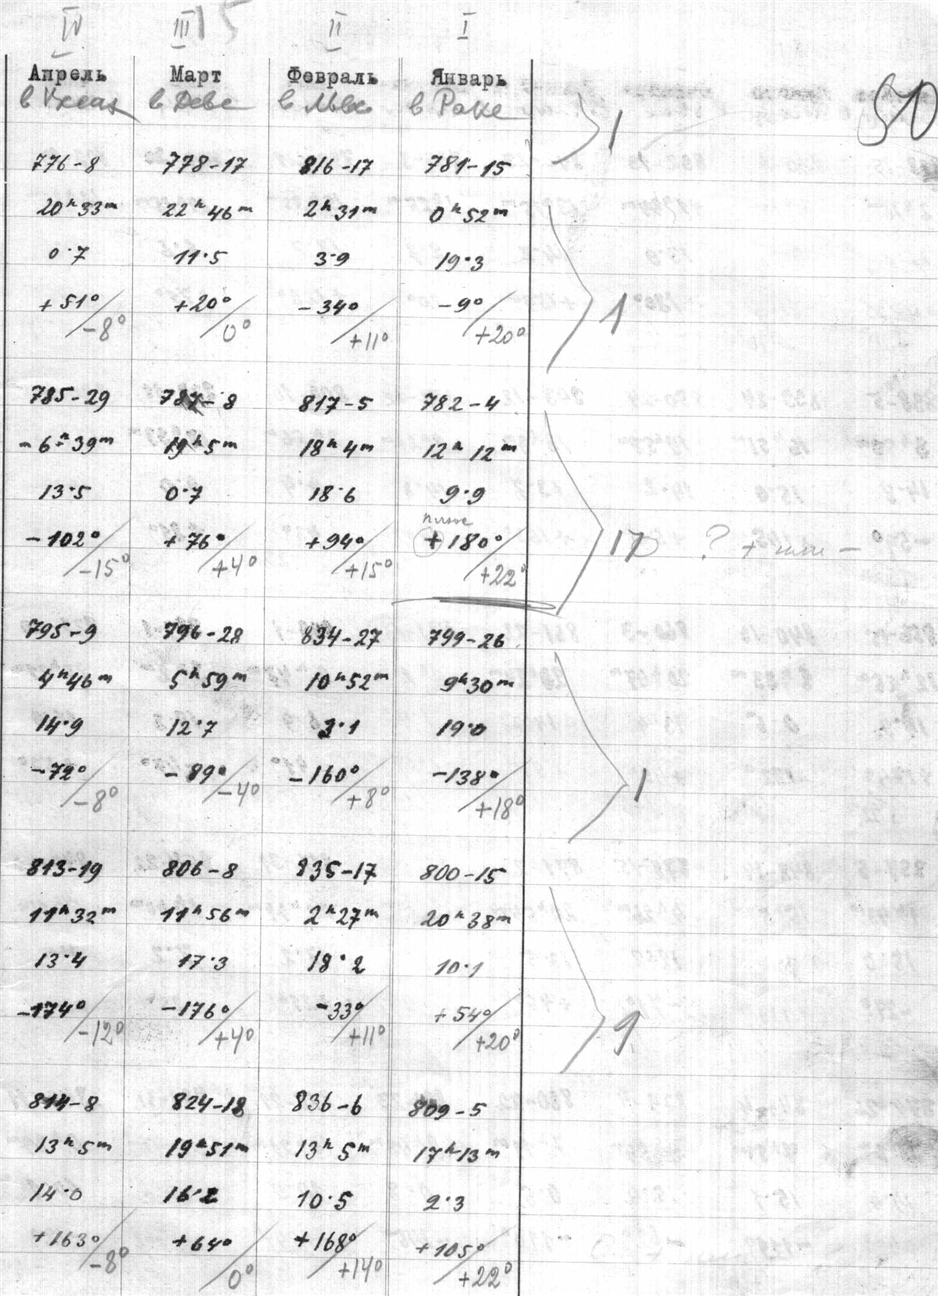 IV III 15 II I
Апрель Март Февраль Январь
в Деве в Льве в Раке
1
510
776-8 778-17 816-17 781-15
20ʰ33ᵐ 22ʰ46ᵐ 2ʰ31ᵐ 0ʰ52ᵐ
0·7 11·5 3·9 19·3
+51° +20° -34° -9°
1
-8° 0° +11° +20°
785-29 787-8 817-5 782-4
6ʰ39ᵐ 19ʰ5ᵐ 18ʰ4ᵐ 12ʰ12ᵐ
13·5 0·7 18·6 9·9
-102° +76° +94° +180° 17 ? + или -
-15° +4° +15° +22°
795-9 796-28 834-27 799-26
4ʰ46ᵐ 5ʰ59ᵐ 10ʰ52ᵐ 9ʰ30ᵐ
14·9 12·7 3·1 19·0
-72° -89° -160° -138° 1
-8° -4° +8° +18°
813-19 806-8 835-17 800-15
11ʰ32ᵐ 11ʰ56ᵐ 2ʰ27ᵐ 20ʰ38ᵐ
13·4 17·3 18·2 10·1
-174° -176° -33° +54°
-12° +4° +11° +20° 9
814-8 824-18 836-6 809-5
13ʰ5ᵐ 19ʰ51ᵐ 13ʰ5ᵐ 17ʰ13ᵐ
14·0 16·2 10·5 2·3
+163° +64° +168° +105°
-8° 0° +14° +22°